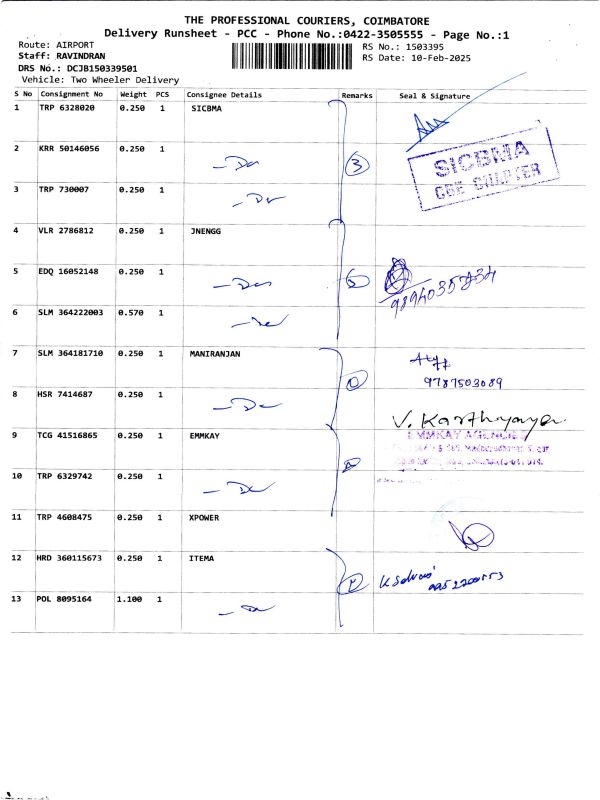 THE PROFESSIONAL COURIERS, COIMBATORE
Delivery Runsheet - PCC - Phone No.:0422-3505555 - Page No.:1
Route: AIRPORT
RS No.: 1503395
Staff: RAVINDRAN
RS Date: 10-Feb-2025
DRS No.: DCJB150339501
Vehicle: Two Wheeler Delivery
S No Consignment No Weight PCS Consignee Details Remarks Seal & Signature
1 TRP 6328020 0.250 1 SICBMA
2 KRR 50146056 0.250 1 3
SICBMA
CBE CHAPTER
3 TRP 730007 0.250 1
4 VLR 2786812 0.250 1 JNENGG
5 EDQ 16052148 0.250 1
6 SLM 364222003 0.570 1
7 SLM 364181710 0.250 1 MANIRANJAN
9787503089
8 HSR 7414687 0.250 1
9 TCG 41516865 0.250 1 EMMKAY
EMMKAY AGENCIES
10 TRP 6329742 0.250 1
11 TRP 4608475 0.250 1 XPOWER
12 HRD 360115673 0.250 1 ITEMA
13 POL 8095164 1.100 1